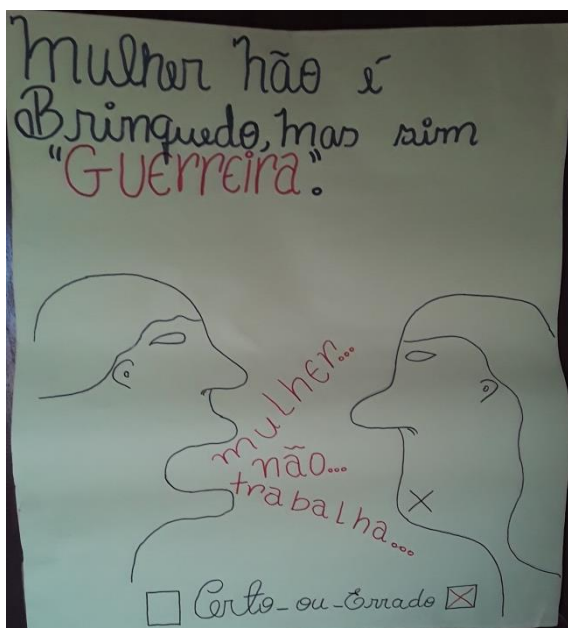 Mulher não é
Brinquedo, mas sim
"Guerreira".
mulher...
não...
trabalha...
Certo-ou-Errado